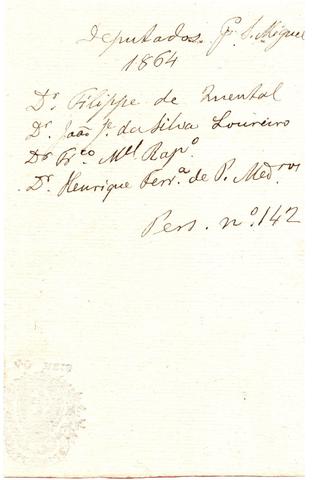 Deputados. Pr S. Miguel
1864
Dr. Filippe de Quental
Dr. João Je. da Silva Loureiro
Dr. Fr.co M.el Rap.o
Dr. Henrique Ferr.a de P. Med.ros
Pers. n.o 142